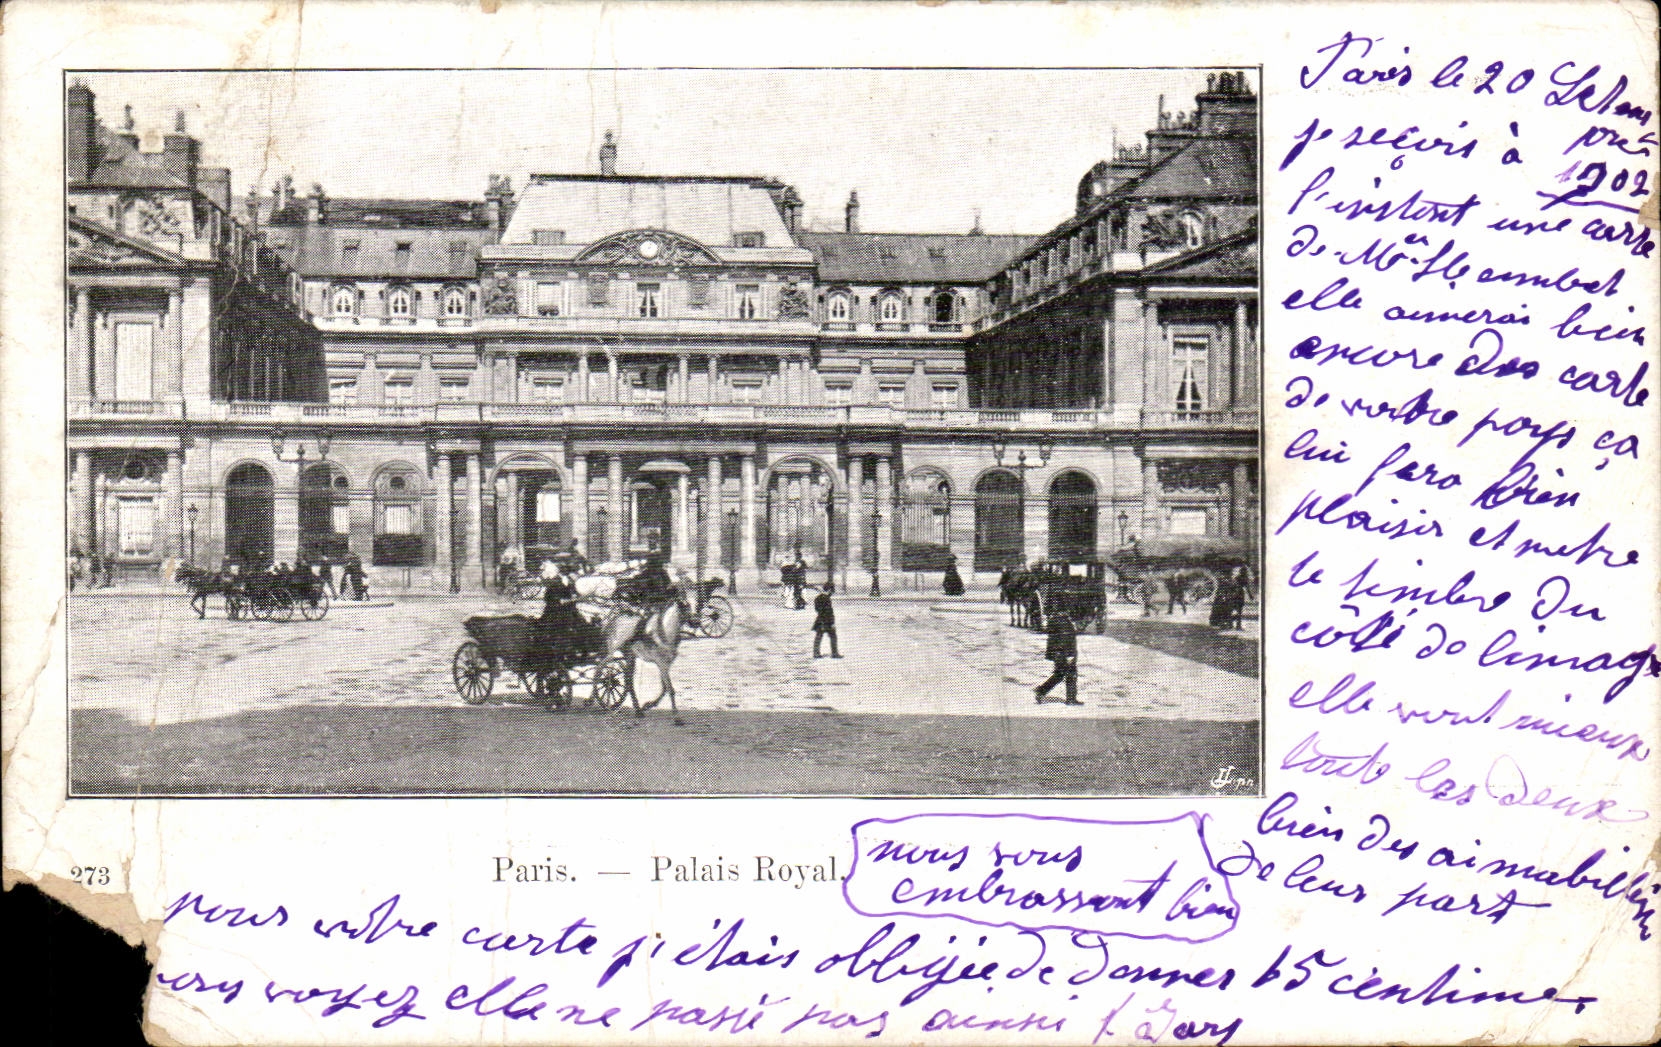 Paris le 20 Setem
pre
1902
je reçois à
l'instant une carte
de Me
elle aimerai bien
encore des carte
de votre pays ça
lui fera bien
plaisir et metre
le timbre du
côté de limage
elle vont mieux
toute les deux
bien des aimabilité
de leur part
273
Paris. — Palais Royal.
nous vous
embrassont bien
pour votre carte j'étais obligée de donner 15 centimes
vous voyez elle ne passe pas ainsi